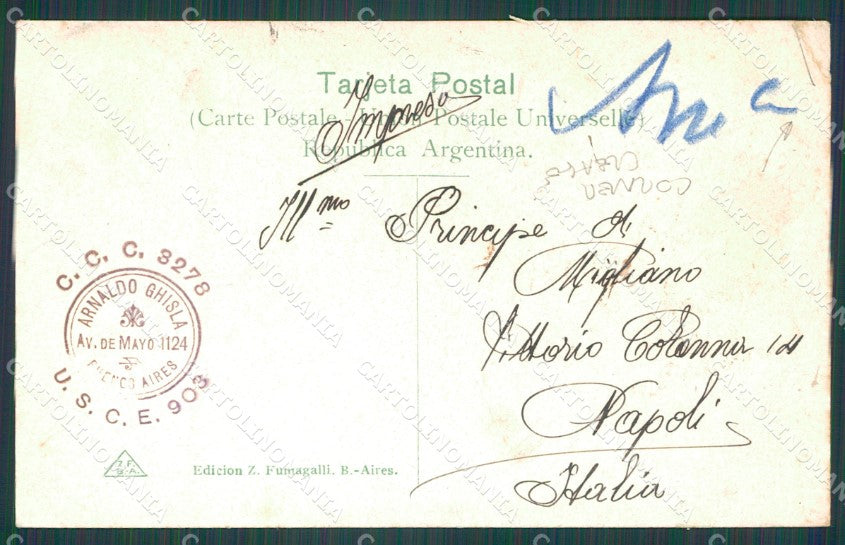 Tarjeta Postal
(Carte Postale - Postale Universelle)
Impreso
República Argentina.
CORNER
CREASED
Ill mo Principe di
Migliano
Vittorio Colonna 14
Napoli
Italia
C. C. C. 3278
ARNALDO GHISLA
AV. DE MAYO 1124
BUENOS AIRES
U. S. C. E. 903
Z. F.
B. A.
Edicion Z. Fumagalli. B.-Aires.
CARTOLINOMANIA